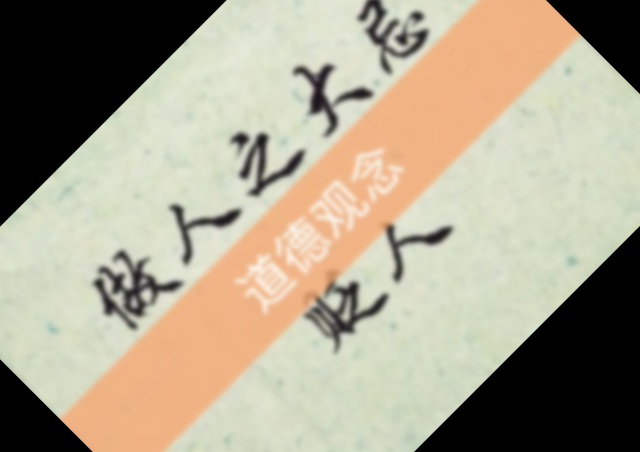 做人之大忌
道德观念
贬人